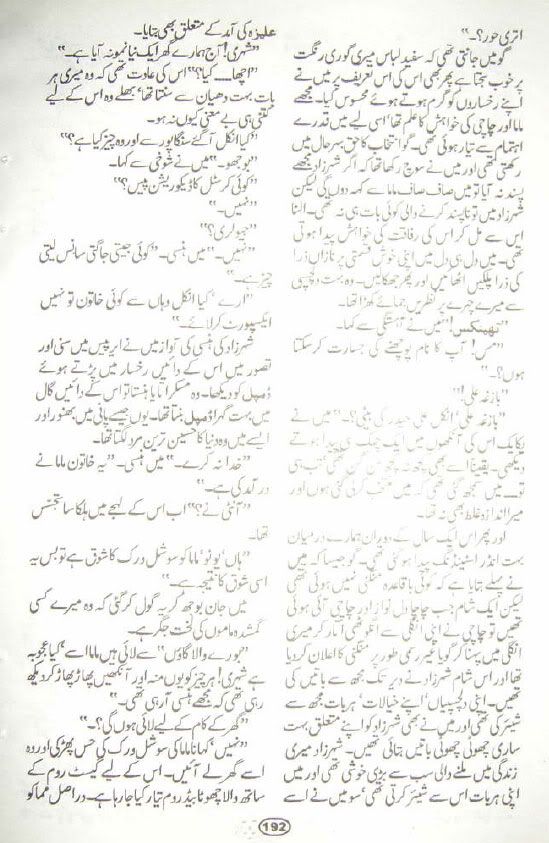 اتری حور؟۔“
گو میں جانتی تھی کہ سفید لباس میری گوری رنگت
پر خوب سجتا ہے پھر بھی اس کی اس تعریف پر میں نے
اپنے رخساروں کو گرم ہوتے ہوئے محسوس کیا۔ مجھے
ماما اور چاچی کی خواہش کا علم تھا‘ اسی لیے میں قدرے
اہتمام سے تیار ہوئی تھی۔ گو انتخاب کا حق بہرحال میں
رکھتی تھی اور میں نے سوچ رکھا تھا کہ اگر شہرزاد مجھے
پسند نہ آیا تو میں صاف صاف ماما سے کہہ دوں گی لیکن
شہرزاد میں تو ناپسند کرنے والی کوئی بات ہی نہ تھی۔ الٹا
اس سے مل کر اس کی رفاقت کی خواہش پیدا ہوتی
تھی۔ میں دل ہی دل میں اپنی خوش قسمتی پر نازاں ذرا
کی ذرا پلکیں اٹھائیں اور پھر جھکالیں۔ وہ بہت دلچسپی
سے میرے چہرے پر نظریں جمائے کھڑا تھا۔
”تھینکس!“ میں نے آہستگی سے کہا۔
”مس! آپ کا نام پوچھنے کی جسارت کرسکتا
ہوں؟۔“
”بازغہ علی!“
”بازغہ علی! انکل علی حیدر کی بیٹی؟۔“ میں نے
یکایک اس کی آنکھوں میں ایک چمک سی پیدا ہوتے
دیکھی۔ یقیناً اسے بھی کچھ نہ کچھ سن گن تھی جب ہی
تو۔۔ میں سمجھ گئی تھی کہ میں منتخب کرلی گئی ہوں اور
میرا اندازہ غلط بھی نہ تھا۔
اور پھر اس ایک سال کے دوران ہمارے درمیان
بہت انڈر اسٹینڈنگ پیدا ہوگئی تھی۔ گو جیسا کہ میں
نے پہلے بتایا ہے کہ کوئی باقاعدہ منگنی نہیں ہوئی تھی
لیکن ایک شام جب چاچا دل نواز اور چاچی آئی ہوئی
تھیں تو چاچی نے اپنی انگلی سے انگوٹھی اتار کر میری
انگلی میں پہنا کر گویا غیر رسمی طور پر منگنی کا اعلان کردیا
تھا اور اس شام شہرزاد نے دیر تک مجھ سے باتیں کی
تھیں۔ اپنی دلچسپیاں‘ اپنے خیالات‘ ہر بات مجھ سے
شیئر کی تھی اور میں نے بھی شہرزاد کو اپنے متعلق بہت
ساری چھوٹی چھوٹی باتیں بتائی تھیں۔ شہرزاد میری
زندگی میں ملنے والی سب سے بڑی خوشی تھی اور میں
اپنی ہر بات اس سے شیئر کرتی تھی‘ سو میں نے اسے
علیزہ کی آمد کے متعلق بھی بتایا۔
”شہری! آج ہمارے گھر ایک نیا نمونہ آیا ہے۔“
”اچھا۔۔ کیا؟“ اس کی عادت تھی کہ وہ میری ہر
بات بہت دھیان سے سنتا تھا‘ بھلے وہ اس کے لیے
کتنی ہی بے معنی کیوں نہ ہو۔
”کیا انکل آگئے سنگاپور سے اور وہ چیز کیا ہے؟“
”بوجھو۔“ میں نے شوخی سے کہا۔
”کوئی کرسٹل کا ڈیکوریشن پیس؟“
”نہیں۔“
”جیولری؟“
”نہیں۔“ میں ہنسی۔ ”کوئی جیتی جاگتی سانس لیتی
چیز ہے۔“
”ارے‘ کیا انکل وہاں سے کوئی خاتون تو نہیں
ایکسپورٹ کرلائے۔“
شہرزاد کی ہنسی کی آواز میں نے ایئر پیس میں سنی اور
تصور میں اس کے دائیں رخسار میں پڑتے ہوئے
ڈمپل کو دیکھا۔ وہ مسکراتا یا ہنستا تو اس کے دائیں گال
میں بہت گہرا ڈمپل بنتا تھا۔ یوں جیسے پانی میں بھنور اور
ایسے میں وہ دنیا کا حسین ترین مرد لگتا تھا۔
”خدا نہ کرے۔“ میں ہنسی۔ ”یہ خاتون ماما نے
در آمد کی ہے۔“
”آنٹی نے؟“ اب اس کے لہجے میں ہلکا سا تجسس
تھا۔
”ہاں‘ یونو‘ ماما کو سوشل ورک کا شوق ہے تو بس یہ
اسی شوق کا نتیجہ ہے۔“
میں جان بوجھ کر یہ گول کر گئی کہ وہ میرے کسی
گمشدہ ماموں کی لخت جگر ہے۔
”بورے والا گاؤں“ سے لائی ہیں ماما اسے‘ کیا عجوبہ
ہے شہری! ہر چیز کو یوں منہ اور آنکھیں پھاڑ پھاڑ کر دیکھ
رہی تھی کہ مجھے ہنسی آرہی تھی۔“
”گھر کے کام کے لیے لائی ہوں گی؟۔“
”نہیں‘ کہا نا ماما کی سوشل ورک کی حس پھڑکی اور وہ
اسے گھر لے آئیں۔ اس کے لیے گیسٹ روم کے
ساتھ والا چھوٹا بیڈ روم تیار کیا جارہا ہے۔ در اصل مما کو
192